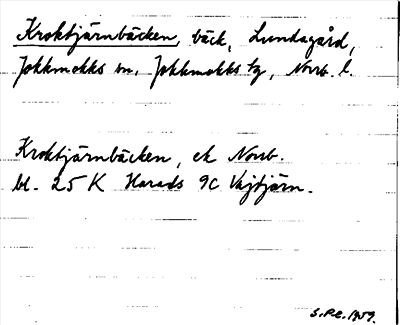 Kroktjärnbäcken, bäck, Lundagård,
Jokkmokks sn, Jokkmokks tg, Norrb. l.
Kroktjärnbäcken, ek Norrb.
bl. 25 K Harads 9c Vajtjärn.
S.P.E. 1959.